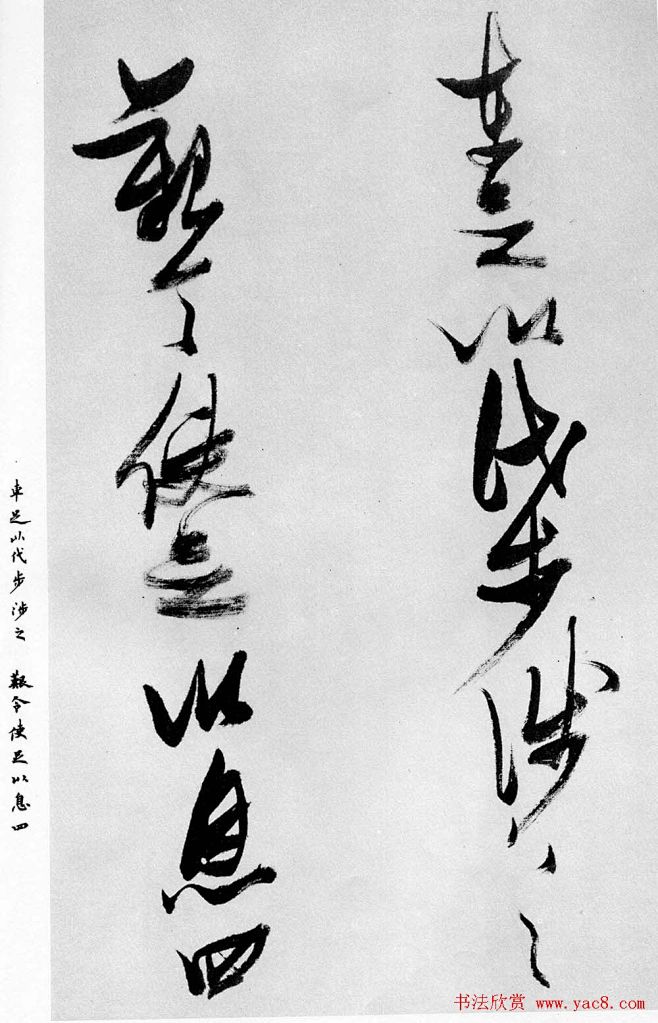 車足以代步涉之
艱令使足以息四
車足以代步涉之 艱令使足以息四
书法欣赏 www.yac8.com